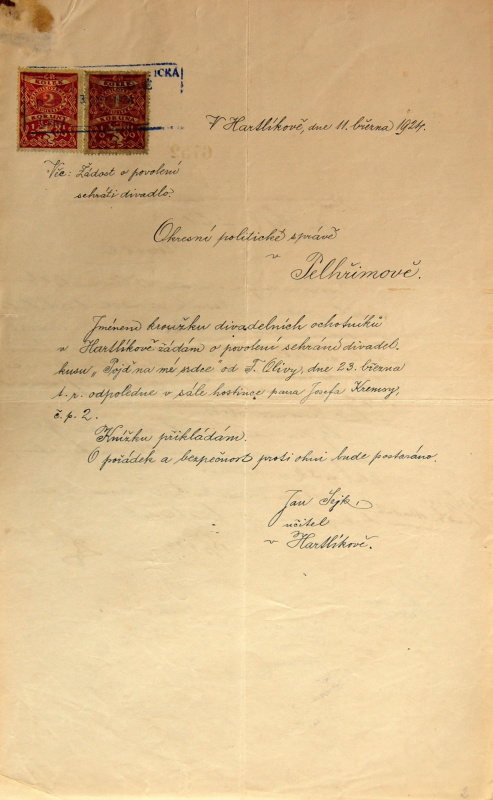 KOLEK
2
KORUNY
KOLEK
KORUNY
ICKÁ
V Hartlíkově, dne 11. března 1924.
6752
Věc: Žádost o povolení
sehráti divadlo.
Okresní politické správě
v
Pelhřimově.
Jménem kroužku divadelních ochotníků
v Hartlíkově žádám o povolení sehrání divadel.
kusu „Pojď na mé srdce" od F. Olivy, dne 23. března
t. r. odpoledne v sále hostince pana Josefa
č. p. 2.
Knížku přikládám.
O pořádek a bezpečnost proti ohni bude postaráno.
Jan
učitel
v Hartlíkově.
2